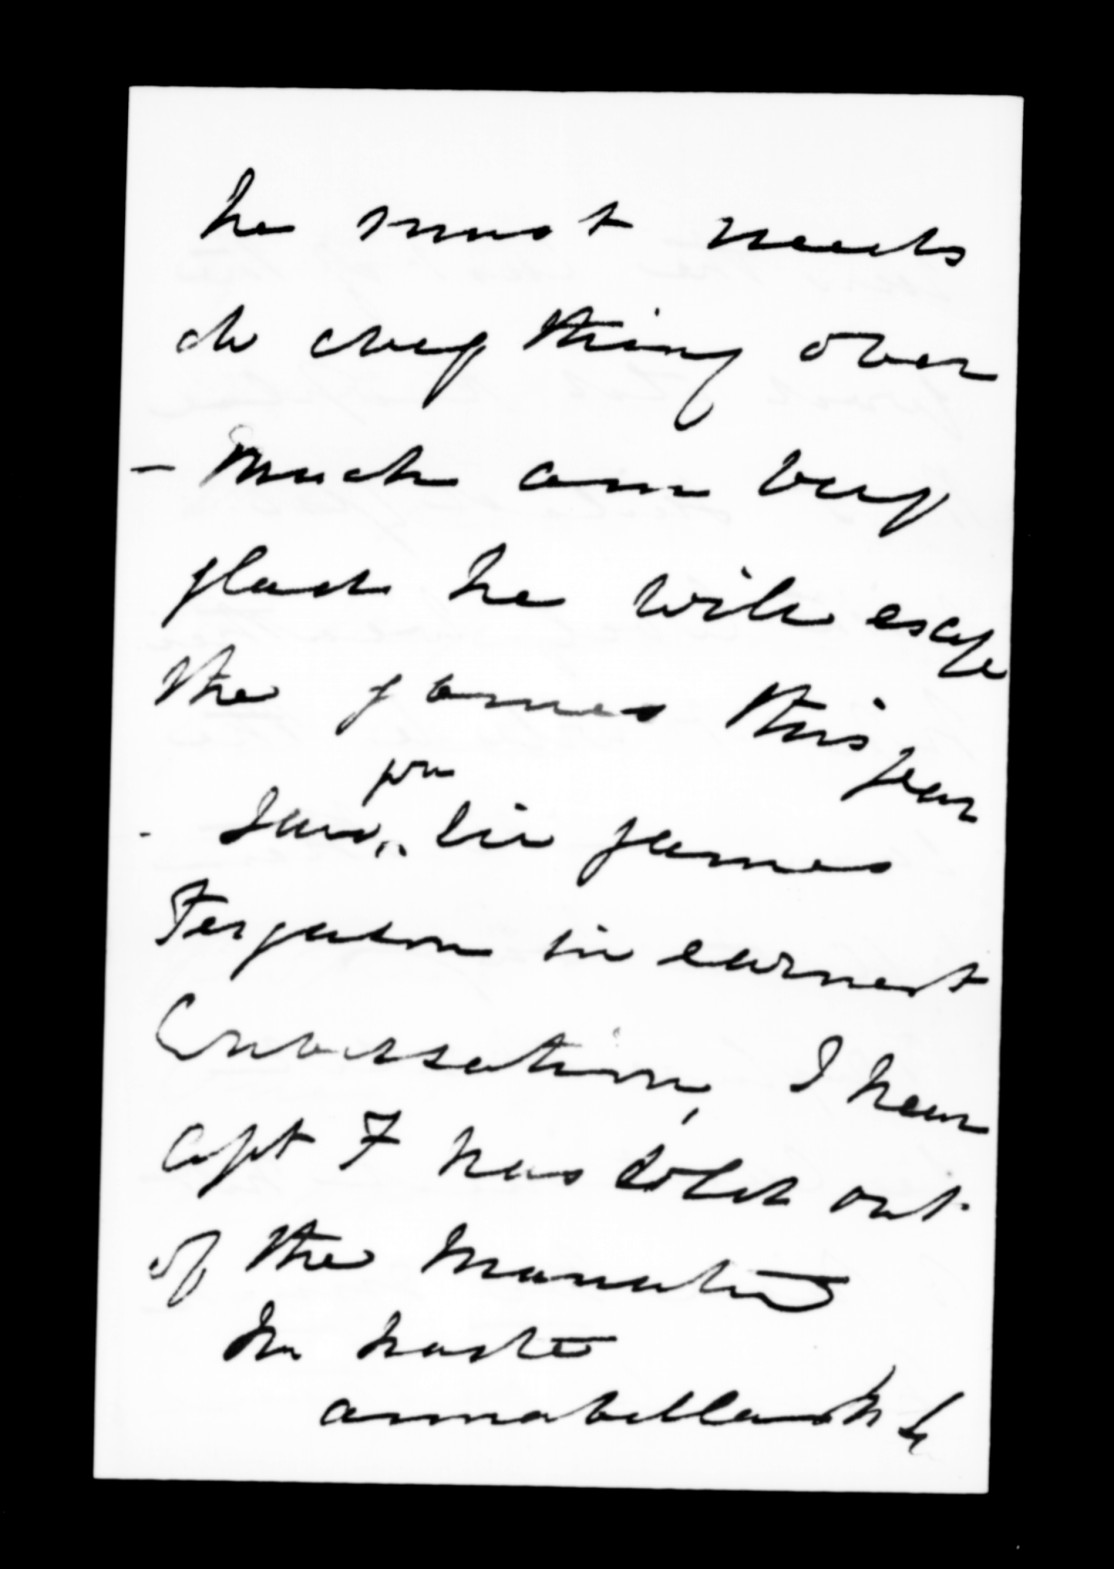 he must needs
do every thing over
- Much am very
glad he will escape
the games this year
- Saw you Sir James
Ferguson in earnest
Conversation, I hear
Capt F has sold out
of the Manawatu
In haste
Annabella McL